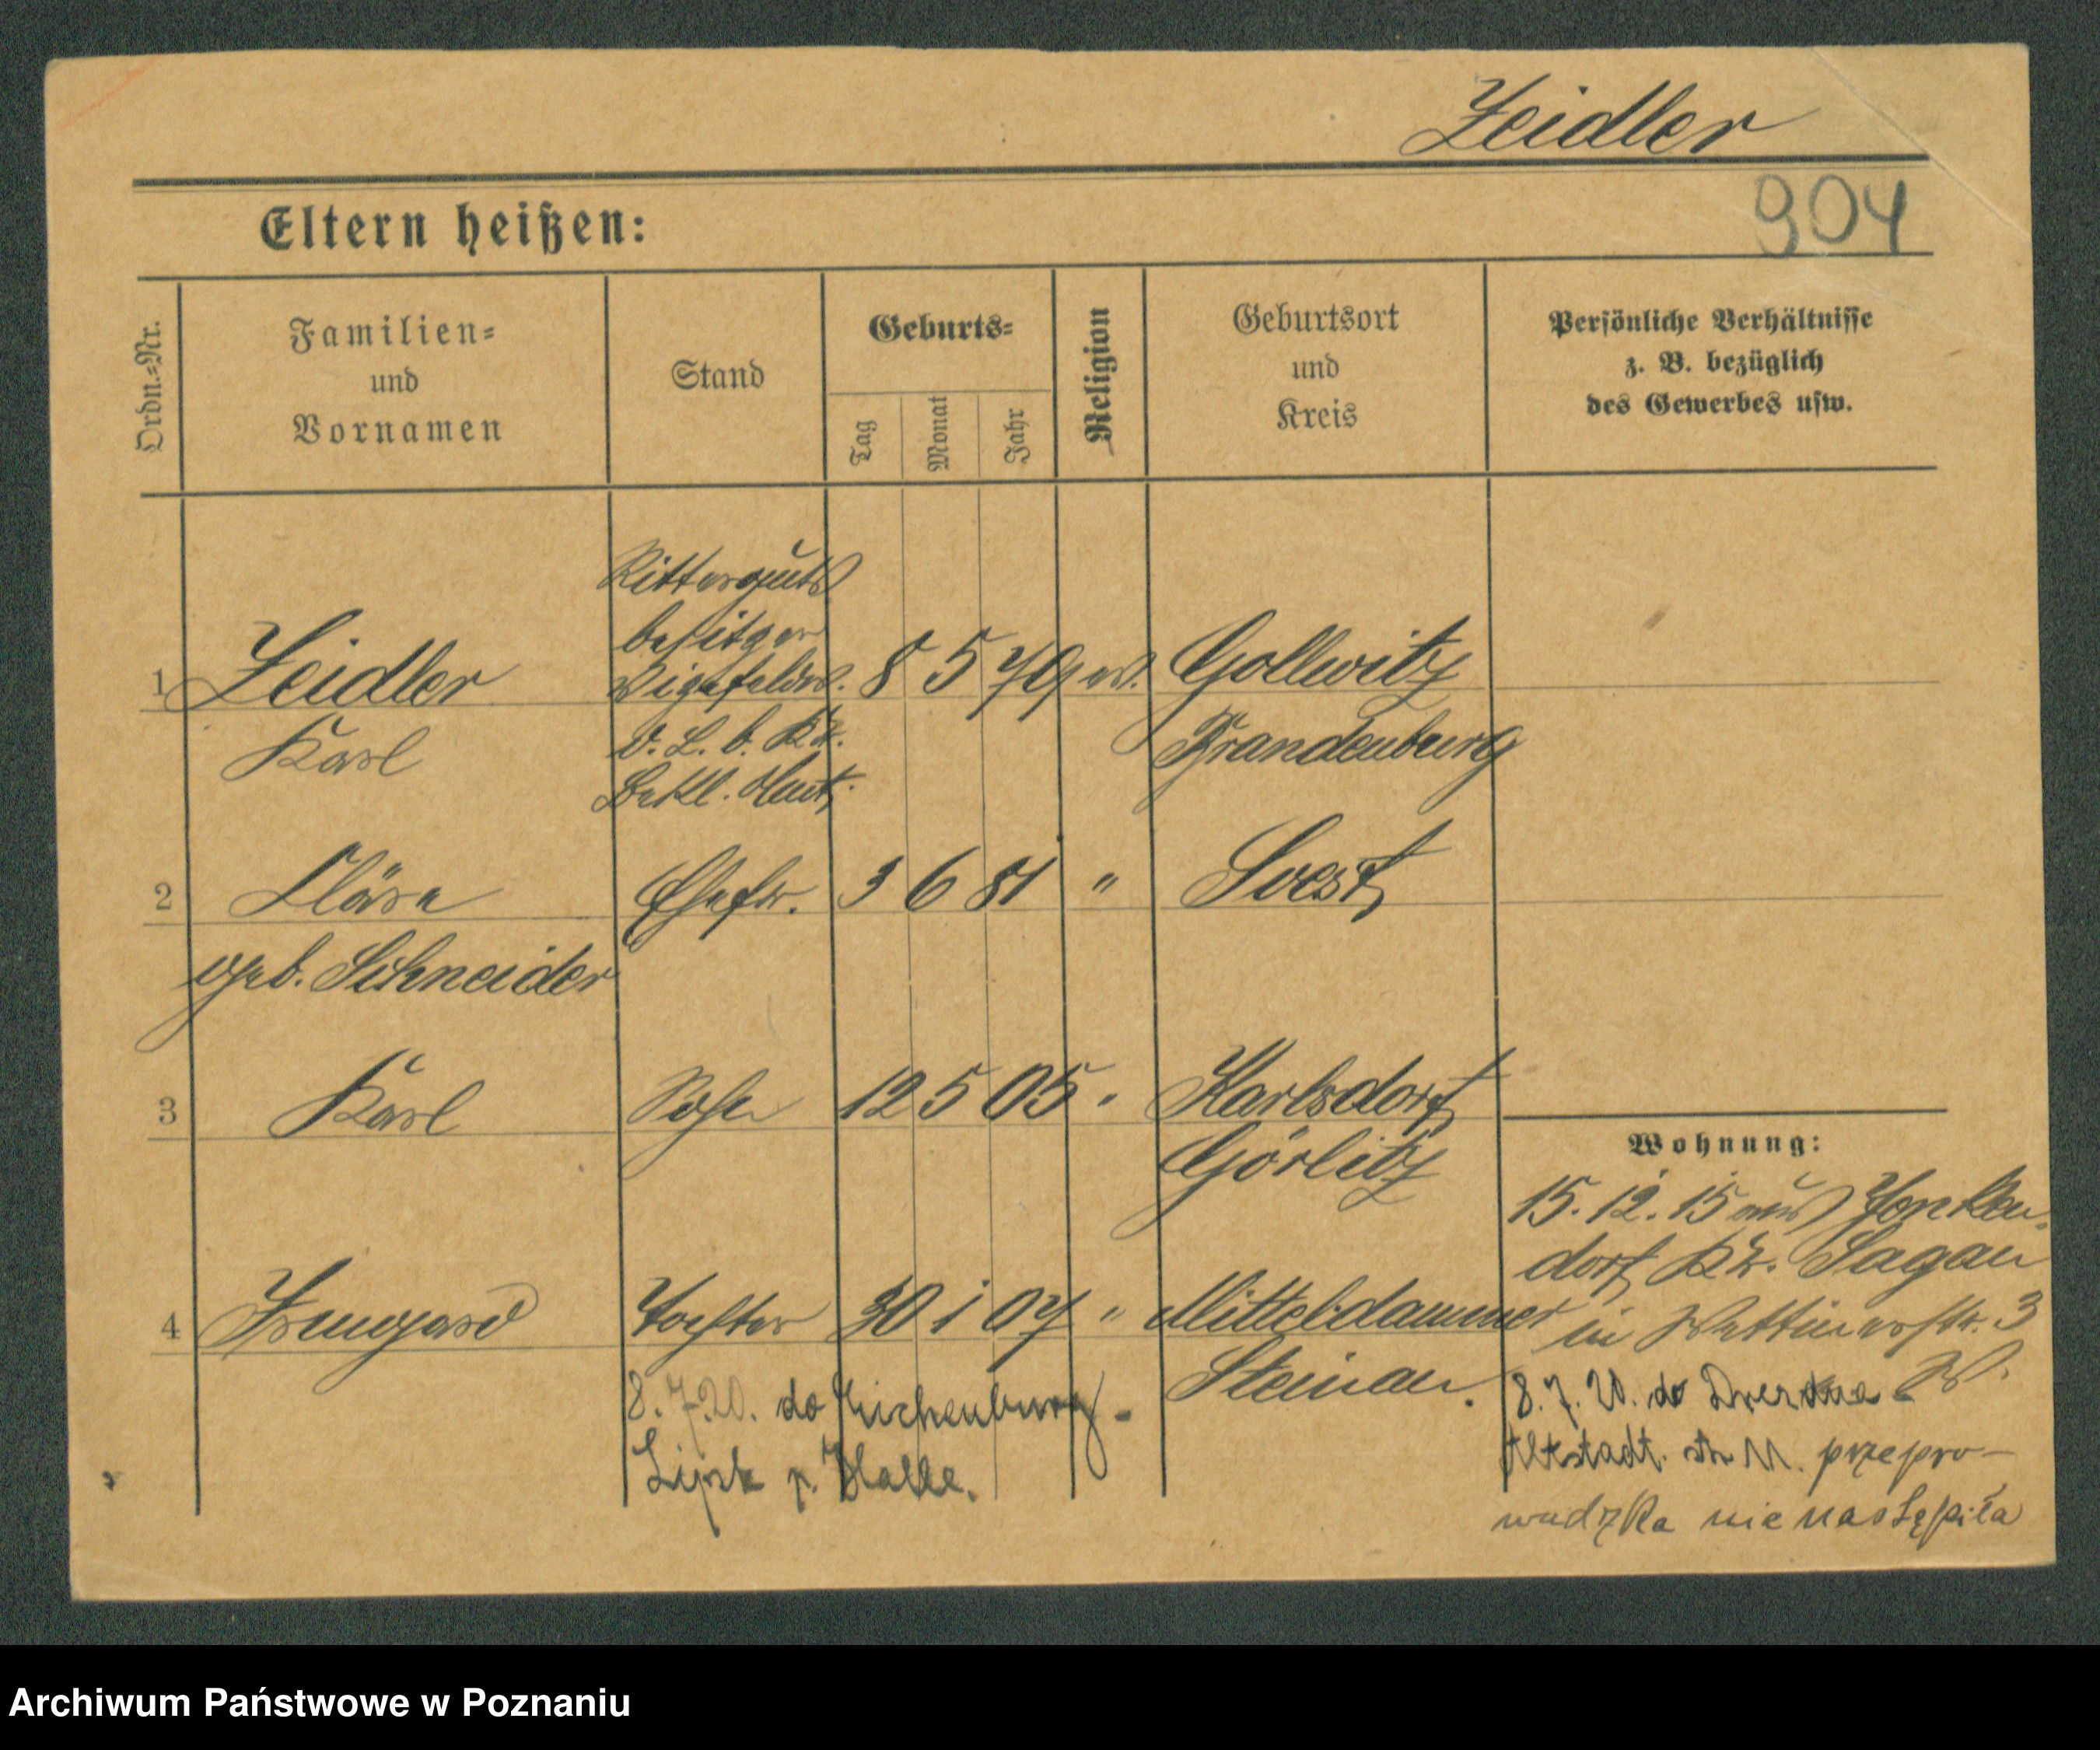 Zeidler
904
Eltern heißen:
Ordn.=Nr.
Familien=
und
Vornamen
Stand
Geburts=
Tag
Monat
Jahr
Religion
Geburtsort
und
Kreis
Persönliche Verhältnisse
z. B. bezüglich
des Gewerbes usw.
Ritterguts
besitzer
Vizefeldw.
d. L. b. Kr.
Bekl. Amt.
1 Zeidler 8 5 79 ev. Gollwitz
Karl Brandenburg
2 Klära Ehefr. 3 6 81 " Soest
geb. Schneider
3 Karl Sohn 12 5 05 " Karlsdorf
Görlitz
4 Irmgard Tochter 30 1 07 " Mitteldammer
Steinau.
8. 7. 20. do Eichenburg -
Lipsk p. Halle.
Wohnung:
15. 12. 15 aus
dorf Kr. Sagan
in Wettinerstr. 3
8. 7. 20. do Drezdna
Altstadt. str 11. przepro-
wadzka nie nastąpiła
Archiwum Państwowe w Poznaniu